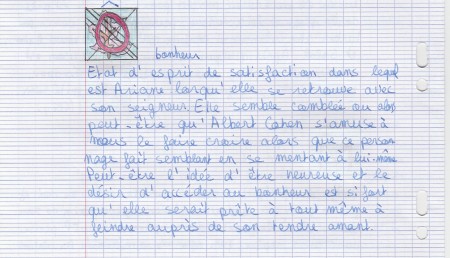 bonheur
Etat d'esprit de satisfaction dans lequel
est Ariane lorsqu'elle se retrouve avec
son seigneur. Elle semble comblée ou alors
peut-être qu'Albert Cohen s'amuse à
nous le faire croire alors que ce person
nage fait semblant en se mentant à lui-même
Peut-être l'idée d'être heureuse et le
désir d'accéder au bonheur est si fort
qu'elle serait prête à tout même à
feindre auprès de son tendre amant.